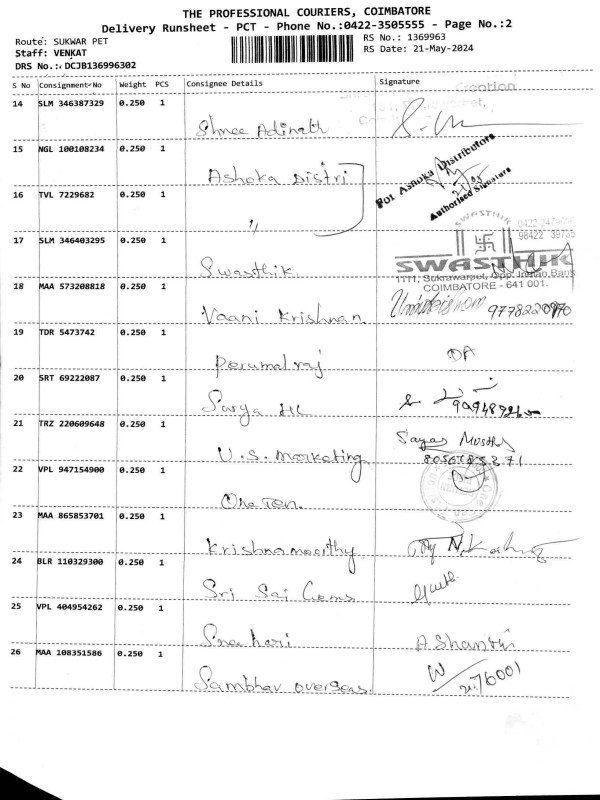 THE PROFESSIONAL COURIERS, COIMBATORE
Delivery Runsheet - PCT - Phone No.:0422-3505555 - Page No.:2
Route: SUKWAR PET
RS No.: 1369963
Staff: VENKAT
RS Date: 21-May-2024
DRS No.: DCJB136996302
S No Consignment No Weight PCS Consignee Details Signature
14 SLM 346387329 0.250 1 Creation
Shree Adinath
15 NGL 100108234 0.250 1
Ashoka Distri For Ashoka Distributors
Authorised Signature
16 TVL 7229682 0.250 1
SWASTHIK
17 SLM 346403295 0.250 1 98422 39735
Swasthik SWASTHIK
1111, Sukrawarpet, Opp. Indian Bank
COIMBATORE - 641 001.
18 MAA 573208818 0.250 1
Vaani Krishnan
19 TDR 5473742 0.250 1
Perumal raj
20 SRT 69222087 0.250 1
21 TRZ 220609648 0.250 1
U.S. Marketing
22 VPL 947154900 0.250 1
23 MAA 865853701 0.250 1
Krishnamoorthy
24 BLR 110329300 0.250 1
Sri Sai Gems
25 VPL 404954262 0.250 1
A. Shanthi
26 MAA 108351586 0.250 1
Sambhav overseas.